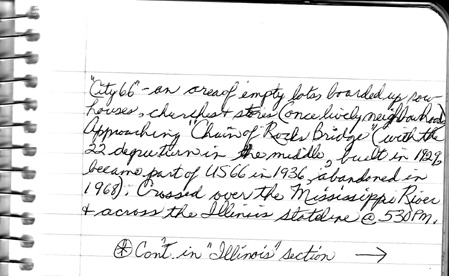 "City 66" - an area of empty lots, boarded up row-
houses, churches & stores (once lively neighborhood)
Approaching "Chain of Rocks Bridge" (with the
22 degree turn in the middle, built in 1929,
became part of US 66 in 1936, abandoned in
1968). Crossed over the Mississippi River
& across the Illinois stateline @ 530 PM.
* Con't. in "Illinois" section →